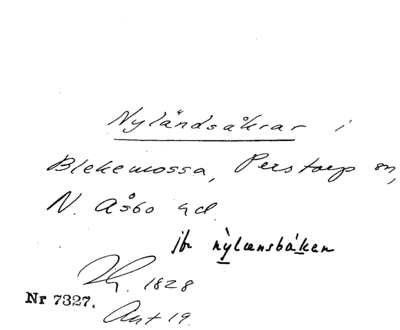 Nyländsåkrar i
Blekemossa, Perstorp sn,
N. Åsbo hd.
jfr nỳlænsbáken
Hy. 1828
Nr 7327.
Ant 19.